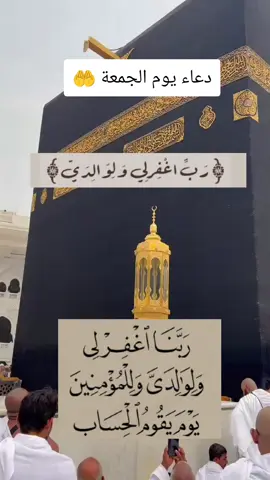 دعاء يوم الجمعة 🤲
﴿ رَبِّ اغْفِرْ لِي وَلِوَالِدَيَّ ﴾
رَبَّنَا ٱغْفِرْ لِى
وَلِوَٰلِدَىَّ وَلِلْمُؤْمِنِينَ
يَوْمَ يَقُومُ ٱلْحِسَابُ